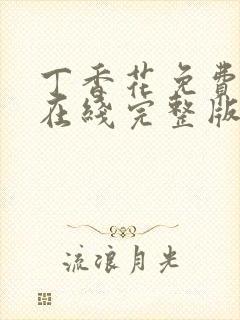 丁香花免費
在綫完整版
流浪月光